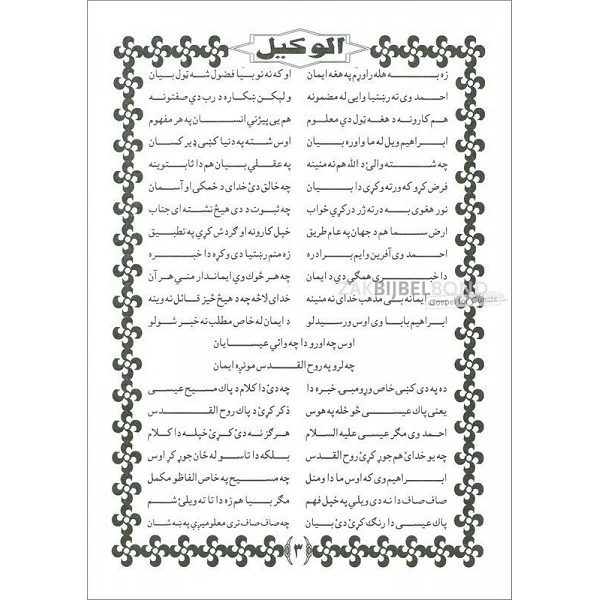 الوکیل
زه به هله راوړم په هغه ایمان او که نه نو بیا فضول شه ټول بیان
احمد وی ته رښتیا وایی له مضمونه ولیکن ښکاره د رب دي صفتونه
هم کارونه د هغه ټول دي معلوم هم یې پیژني انسان په هر مفهوم
ابراهیم ویل له ما واوره بیان اوس شته په دنیا کښې ډیر کسان
چه شته والئ د الله هم نه منینه په عقلي بیان هم دا ثابتوینه
فرض کړو که ورته وکړی دا بیان چه خالق دئ خدای د ځمکی او آسمان
نور هغوی به درته ژر درکړي ځواب چه ثبوت د دی هیڅ نشته ای جناب
ارض سما هم د جهان په عام طریق خپل کارونه او ګردش کړي په تطبیق
احمد وی آفرین وایم برادره زه منم رښتیا دی وکړه دا خبره
دا خبری همګی دي د ایمان چه هر څوك وي ایماندار مني هر آن
ایمانه بی مذهب خدای نه منینه خدای لا څه چه د هیڅ څیز قائل نه وینه
ابراهیم بابا وی اوس ورسیدلو د ایمان له خاص مطلب نه خبر شولو
اوس چه اورو دا چه وائي عیسایان
چه لرو په روح القدس مونږه ایمان
ده په دی کښی خاص وړومبۍ خبره دا چه دئ دا کلام د پاك مسیح عیسی
یعنی پاك عیسی خو خله په هوس ذکر کړئ د پاك روح القدس
احمد وی مګر عیسی علیه السلام هرګز نه دئ کړئ خپله دا کلام
چه یو خدای هم جوړ کړئ روح القدس بلکه دا تاسو له ځان جوړ کړ اوس
ابراهیم وی که اوس ما دا ومنل چه مسیح په خاص الفاظو مکمل
صاف صاف دا نه دی ویلي په خپل فهم مګر بیا هم زه دا تا ته ویلئ شم
پاك عیسی دا رنګ کړئ دئ بیان چه صاف صاف تری معلومیږي په ښه شان
٣
ZAKBIJBELBOND